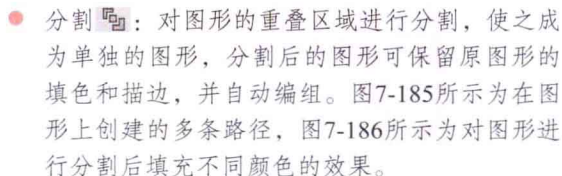 分割：对图形的重叠区域进行分割，使之成
为单独的图形，分割后的图形可保留原图形的
填色和描边，并自动编组。图7-185所示为在图
形上创建的多条路径，图7-186所示为对图形进
行分割后填充不同颜色的效果。